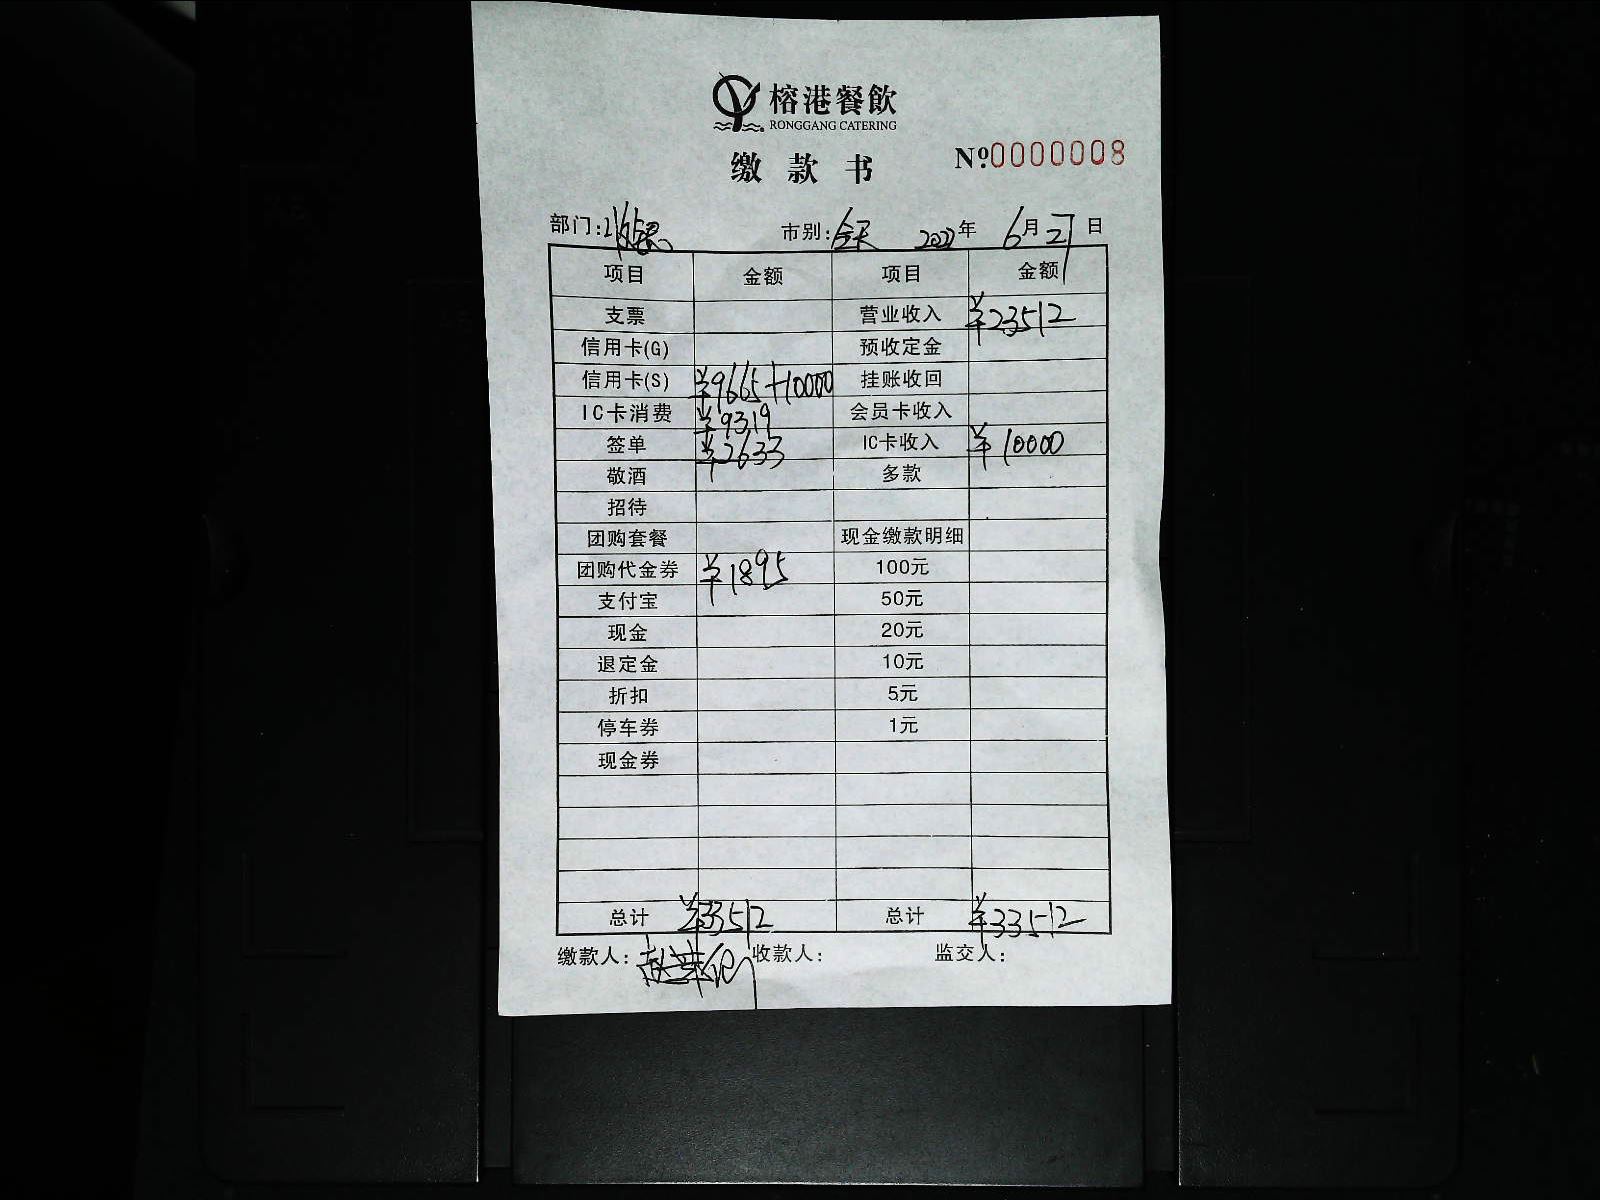 榕港餐飲
RONGGANG CATERING
缴款书 Nº0000008
部门: 收银 市别: 全天 2022年 6月27日
项目 金额 项目 金额
支票 营业收入 ¥23512
信用卡(G) 预收定金
信用卡(S) ¥9665+10000 挂账收回
IC卡消费 ¥9319 会员卡收入
签单 ¥2633 IC卡收入 ¥10000
敬酒 多款
招待
团购套餐 现金缴款明细
团购代金券 ¥1895 100元
支付宝 50元
现金 20元
退定金 10元
折扣 5元
停车券 1元
现金券
总计 ¥33512 总计 ¥33512
缴款人: 收款人: 监交人: